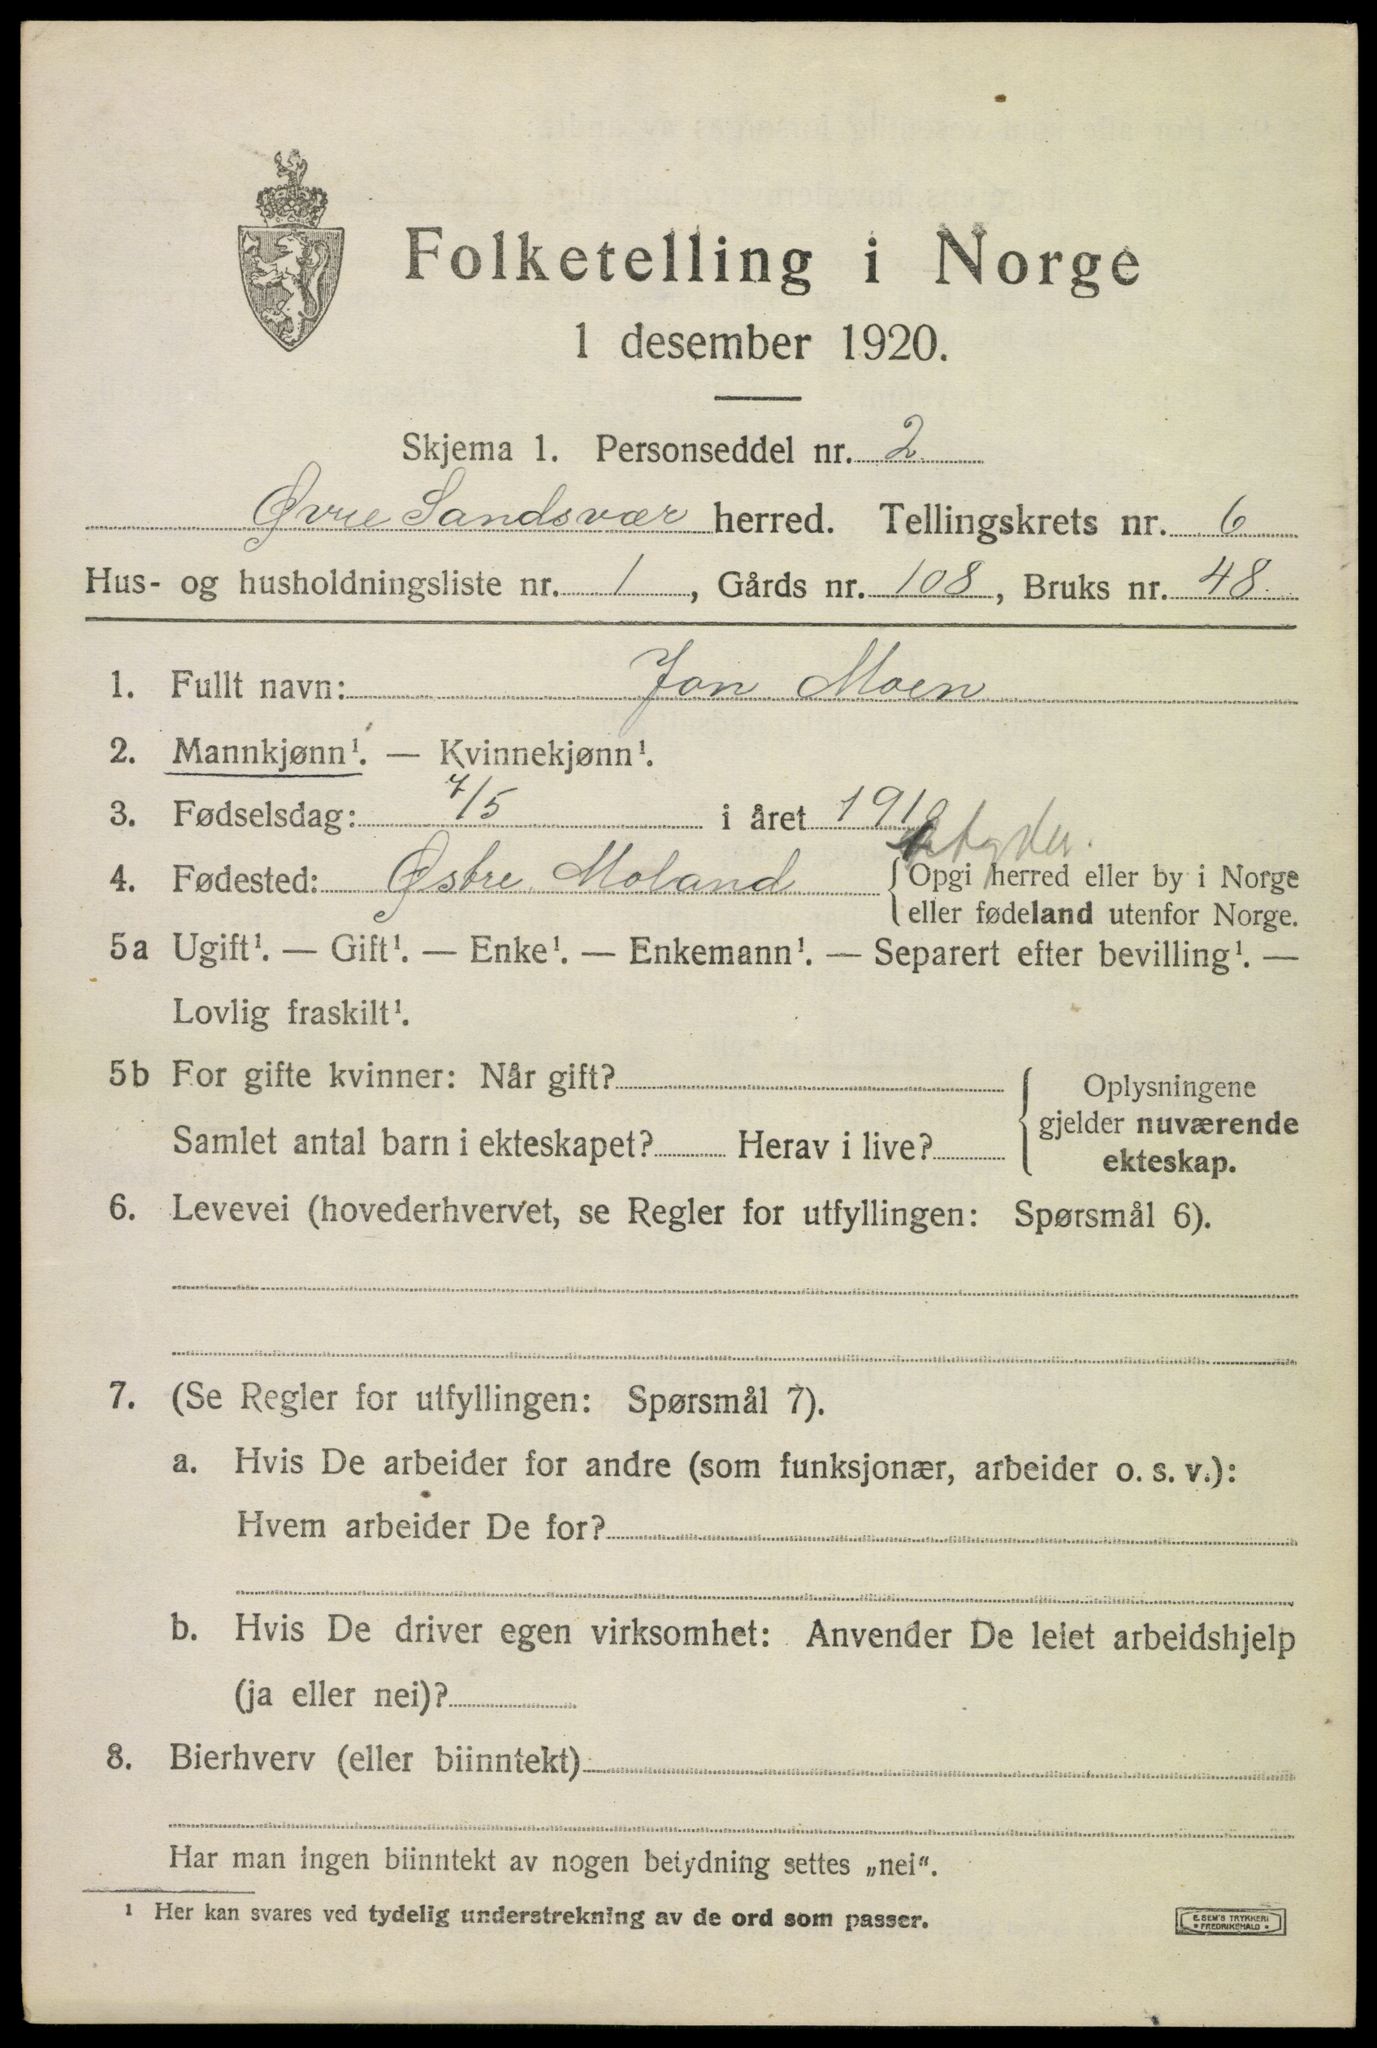 Folketelling i Norge
1 desember 1920.
Skjema 1. Personseddel nr. 2
Øvre Sandsvær herred. Tellingskrets nr. 6
Hus- og husholdningsliste nr. 1, Gårds nr. 108, Bruks nr. 48
1. Fullt navn: Jon Moen
2. Mannkjønn¹. — Kvinnekjønn¹.
3. Fødselsdag: 7/5 i året 1910
4. Fødested: Østre Moland {Opgi herred eller by i Norge
eller fødeland utenfor Norge.
5a Ugift¹. — Gift¹. — Enke¹. — Enkemann¹. — Separert efter bevilling¹. —
Lovlig fraskilt¹.
5b For gifte kvinner: Når gift?
Samlet antal barn i ekteskapet? Herav i live?
Oplysningene
gjelder nuværende
ekteskap.
6. Levevei (hovederhvervet, se Regler for utfyllingen: Spørsmål 6).
7. (Se Regler for utfyllingen: Spørsmål 7).
a. Hvis De arbeider for andre (som funksjonær, arbeider o. s. v.):
Hvem arbeider De for?
b. Hvis De driver egen virksomhet: Anvender De leiet arbeidshjelp
(ja eller nei)?
8. Bierhverv (eller biinntekt)
Har man ingen biinntekt av nogen betydning settes „nei".
¹ Her kan svares ved tydelig understrekning av de ord som passer.
E. SEM'S TRYKKERI
• FREDRIKSHALD •